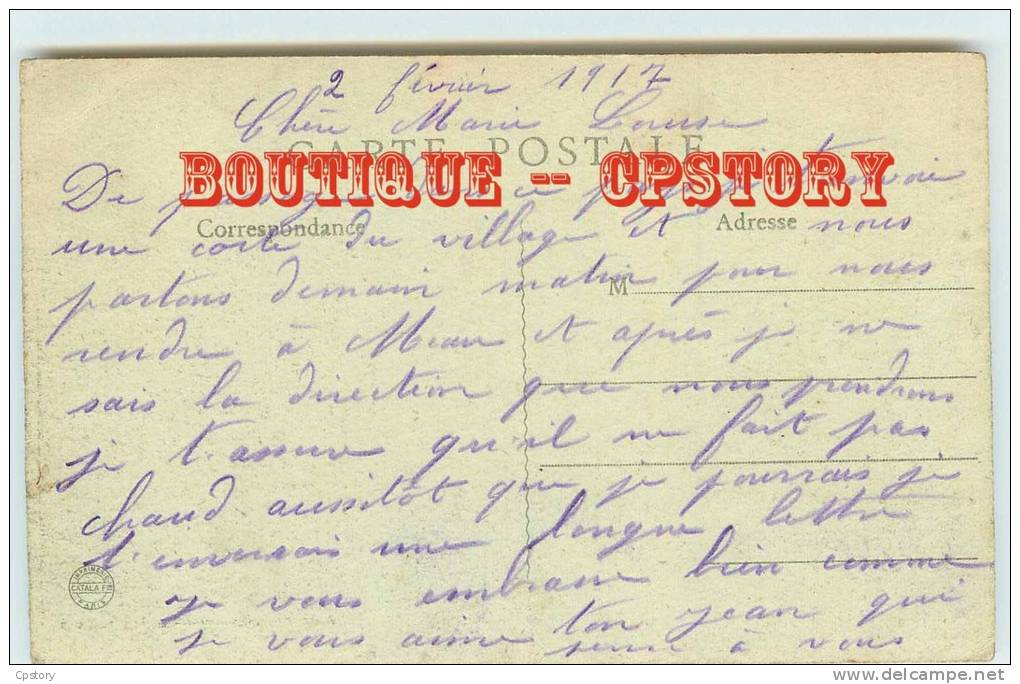 2 février 1917
Chère Marie Louise
CARTE POSTALE
BOUTIQUE -- CPSTORY
De passage ce t'envoie
Correspondance
Adresse
une carte du village et nous
partons demain matin pour nous
M
rendre à Meaux et après je ne
sais la direction que nous prendrons
je t'assure qu'il ne fait pas
chaud aussitôt que je pourrais je
t'enverrais une longue lettre
IMPRIMERIE
CATALA FRES
PARIS
je vous embrasse bien comme
je vous aime ton Jean qui
pense à vous
Cpstory
delcampe.net